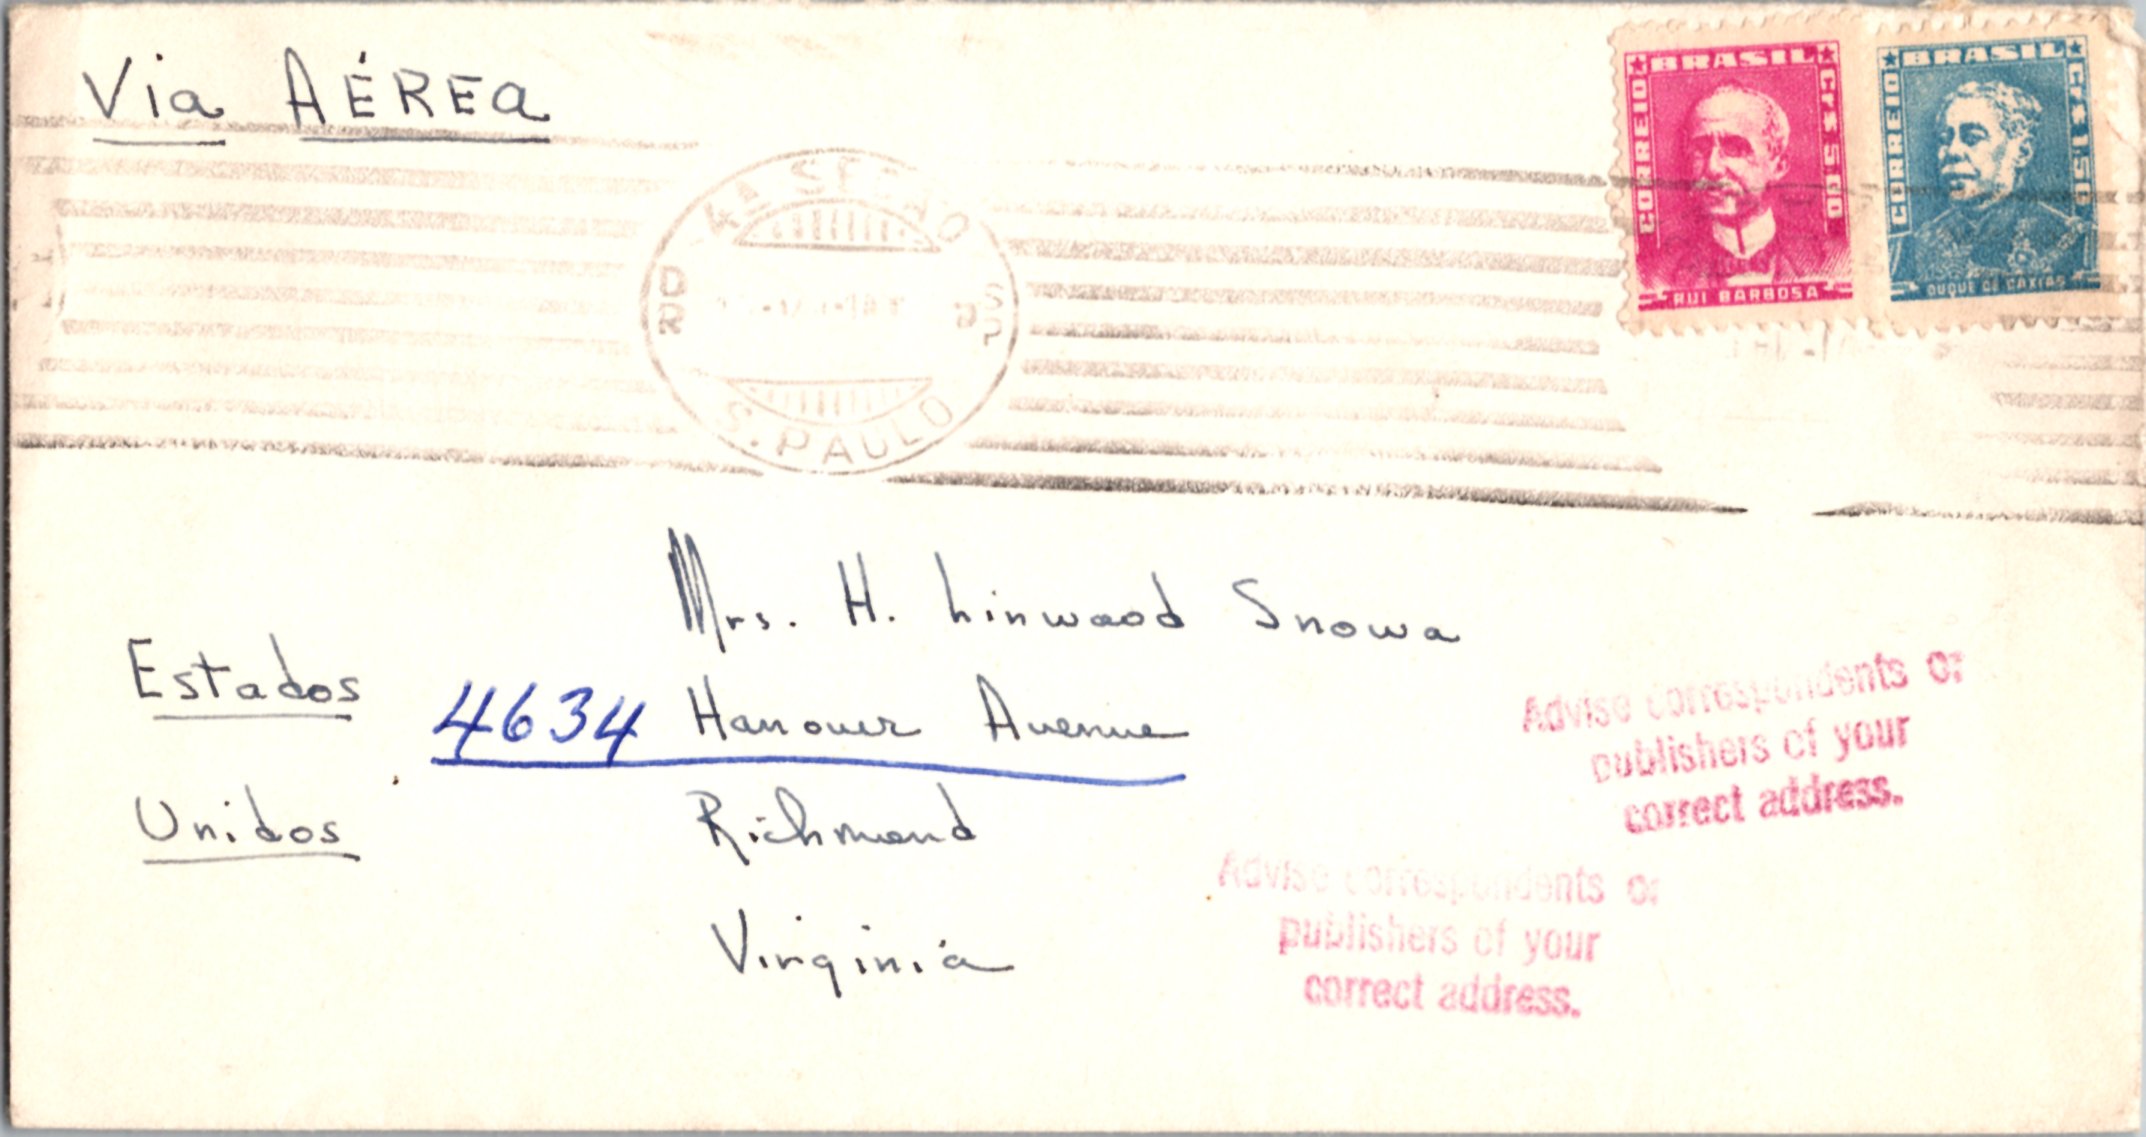 Via AÉREA
BRASIL
CORREIO
Cr$ 5,00
RUI BARBOSA
BRASIL
CORREIO
Cr$ 1,50
DUQUE DE CAXIAS
4A SEÇÃO
DR
SP
S. PAULO
Mrs. H. Linwood Snowa
Estados
4634 Hanover Avenue
Unidos
Richmond
Virginia
Advise correspondents or
publishers of your
correct address.
Advise correspondents or
publishers of your
correct address.